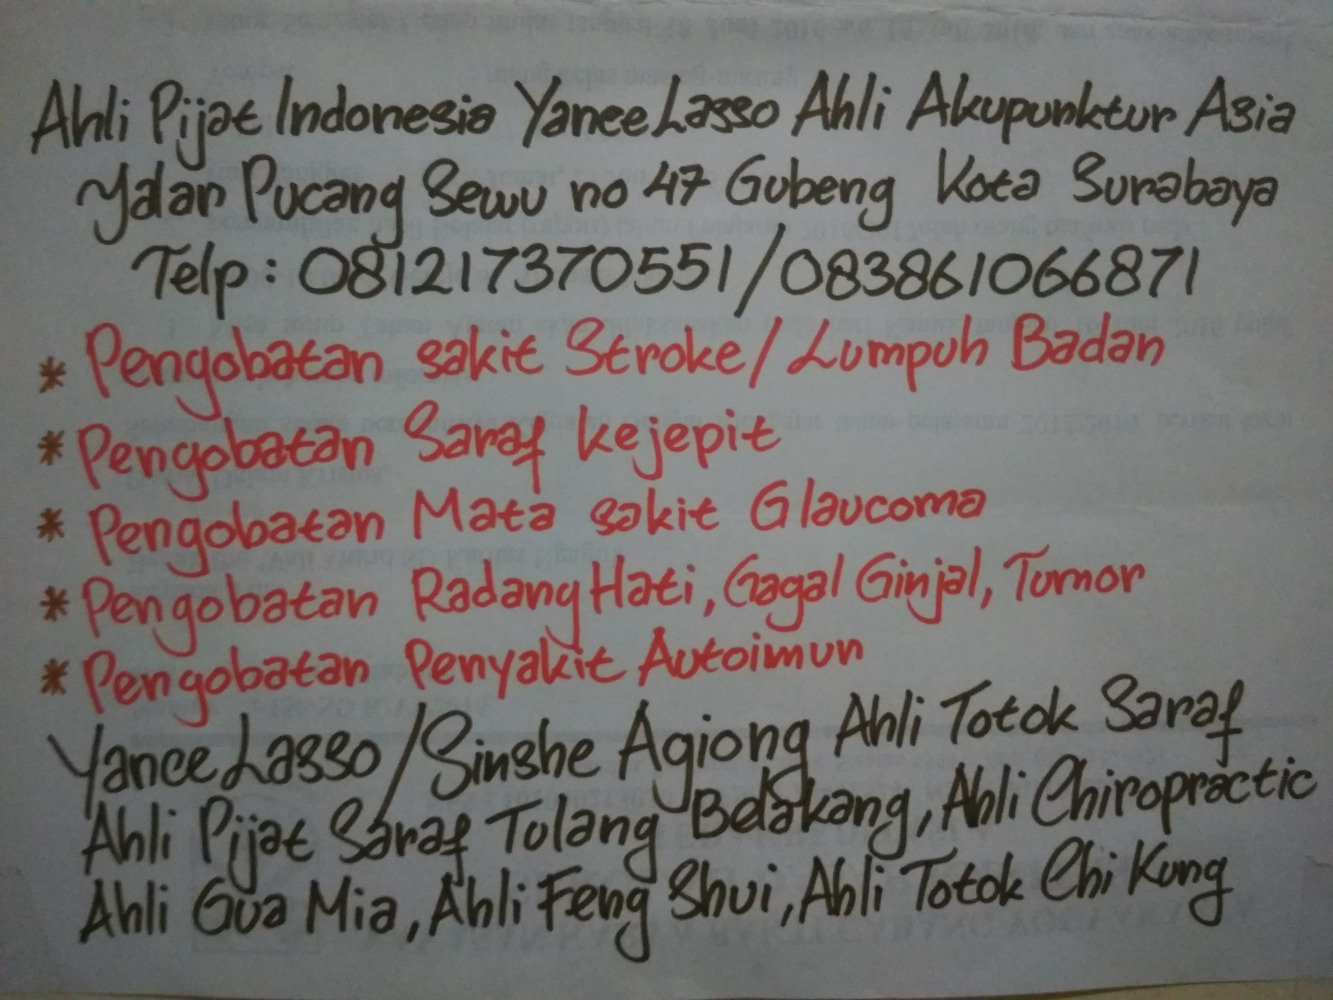 Ahli Pijat Indonesia Yance Lasso Ahli Akupunktur Asia
Jalan Pucang Sewu no 47 Gubeng Kota Surabaya
Telp : 081217370551/083861066871
* Pengobatan sakit Stroke/Lumpuh Badan
* Pengobatan Saraf kejepit
* Pengobatan Mata sakit Glaucoma
* Pengobatan Radang Hati, Gagal Ginjal, Tumor
* Pengobatan Penyakit Autoimun
Yance Lasso/Sinshe Agiong Ahli Totok Saraf
Ahli Pijat Saraf Tulang Belakang, Ahli Chiropractic
Ahli Gua Mia, Ahli Feng Shui, Ahli Totok Chi Kung